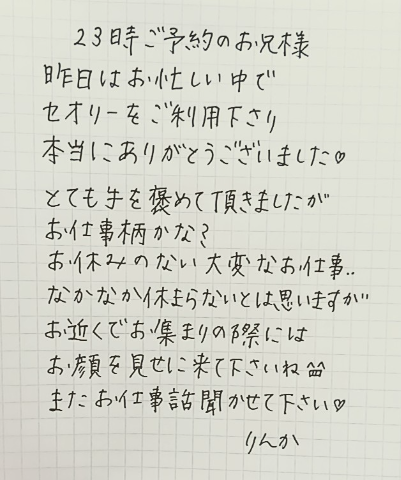 23時ご予約のお兄様
昨日はお忙しい中で
セオリーをご利用下さり
本当にありがとうございました♡
とても手を褒めて頂きましたが
お仕事柄かな?
お休みのない大変なお仕事..
なかなか休まらないとは思いますが
お近くでお集まりの際には
お顔を見せに来て下さいね
またお仕事話聞かせて下さい♡
りんか